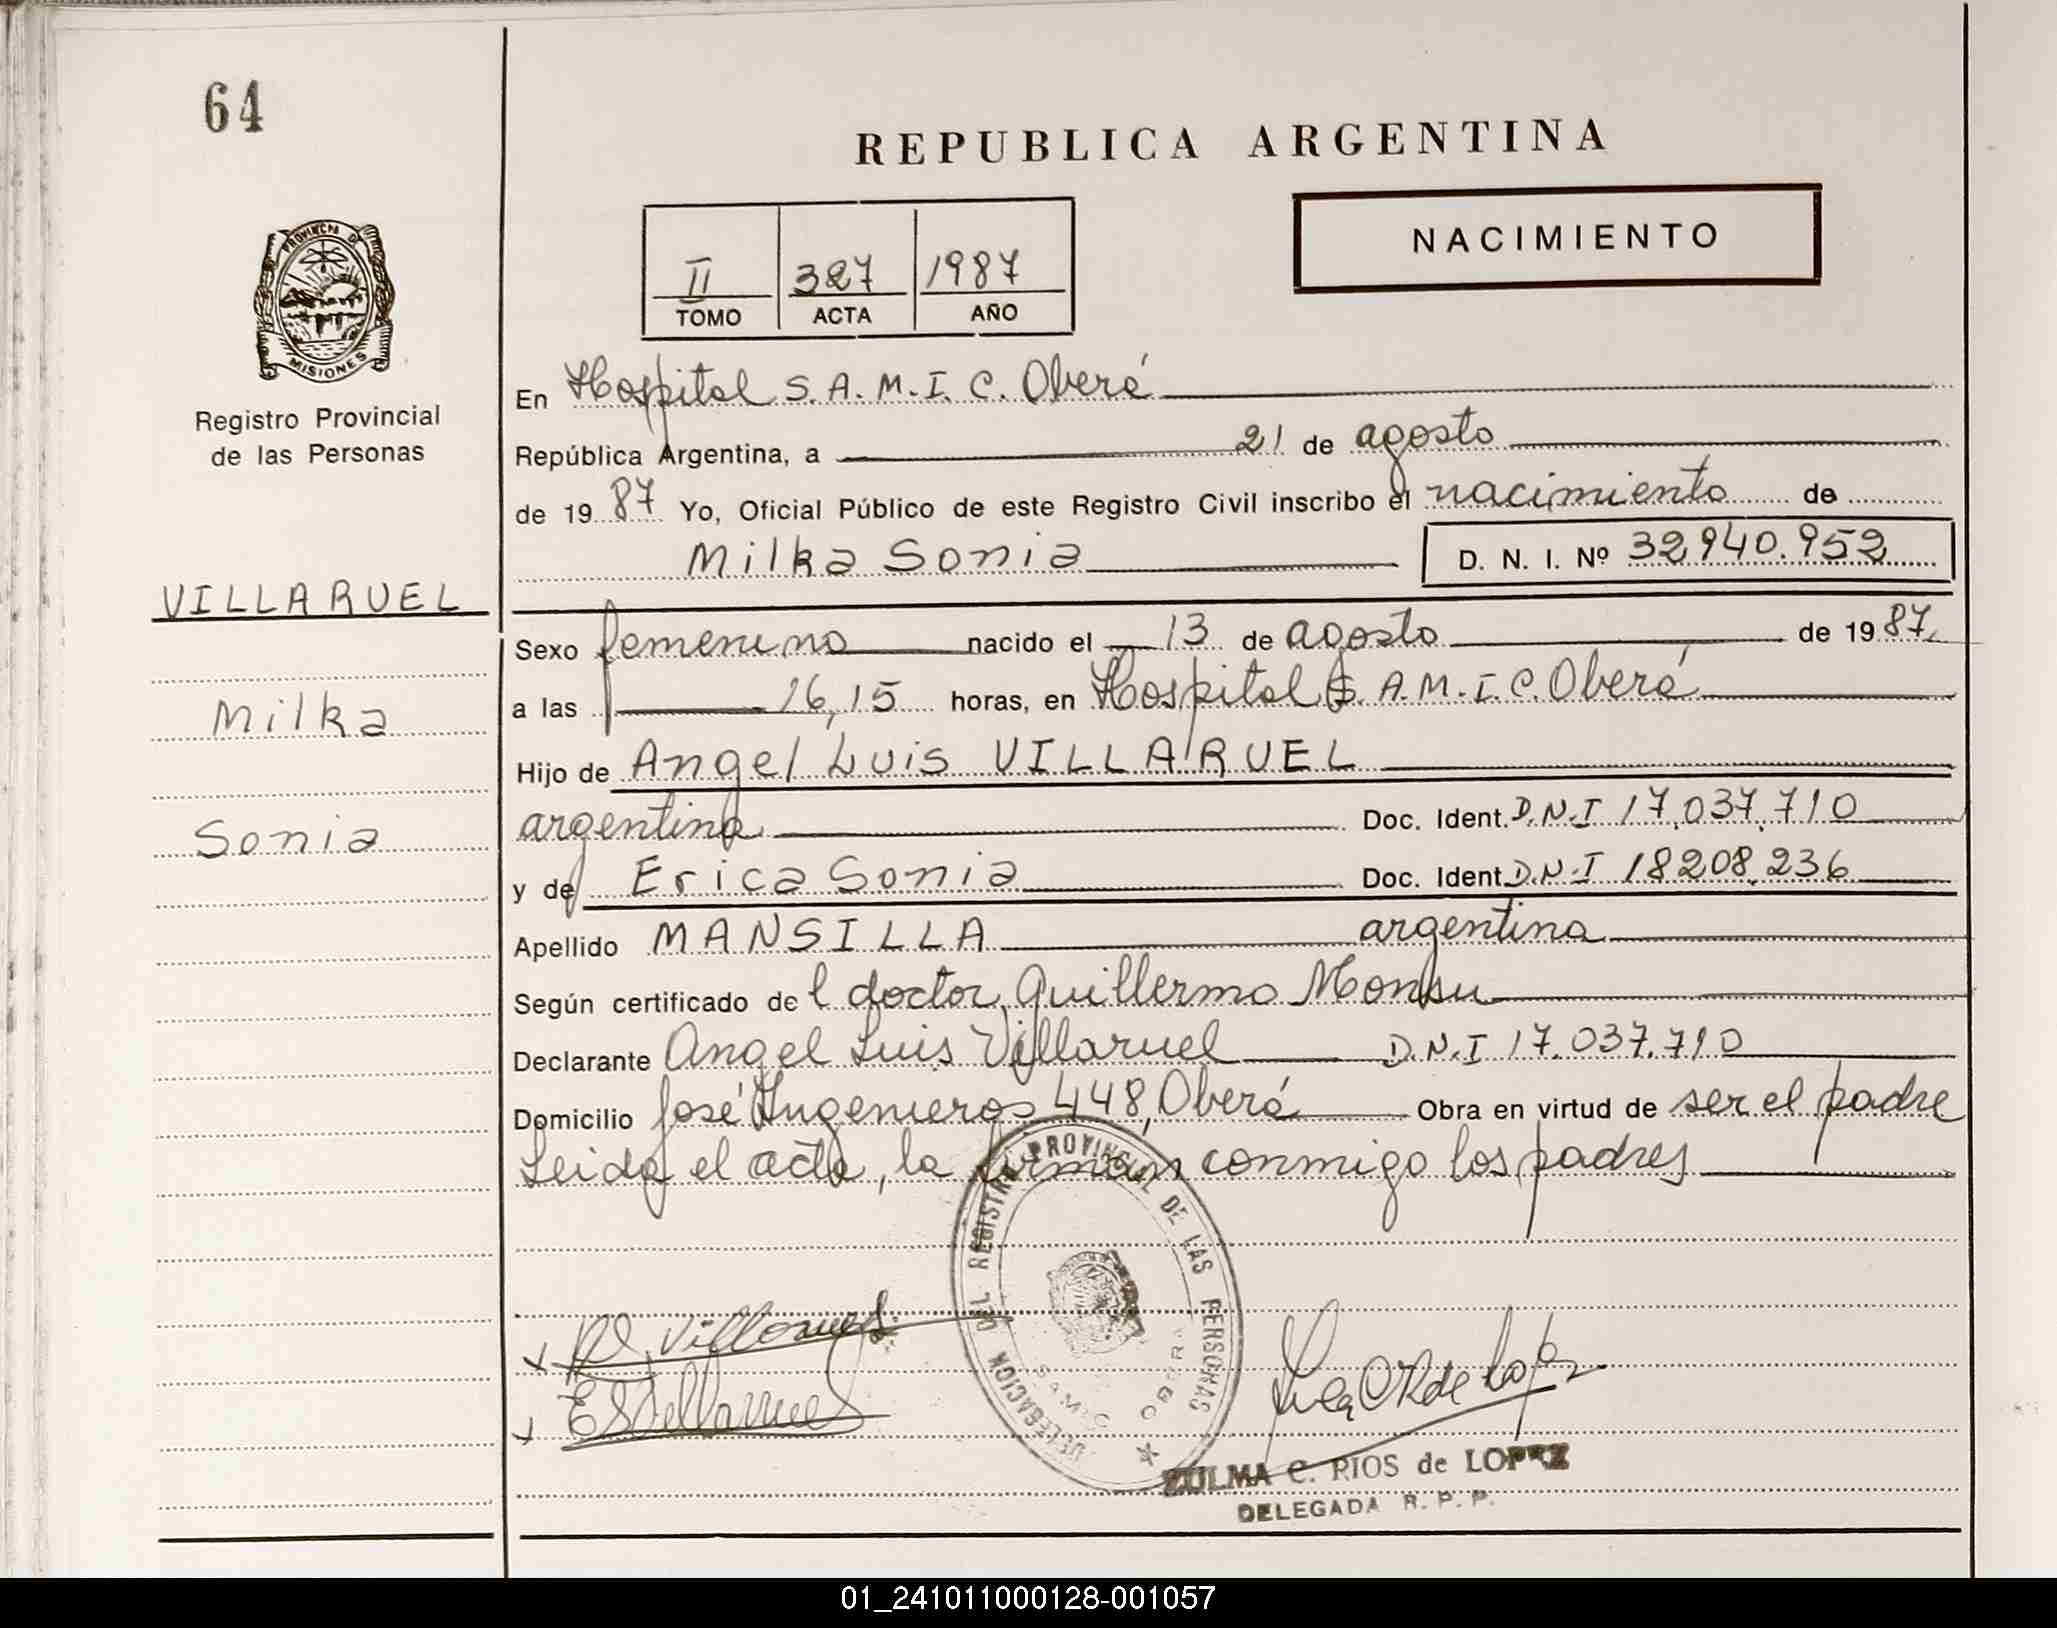 64
REPUBLICA ARGENTINA
NACIMIENTO
II 327 1987
TOMO ACTA AÑO
PROVINCIA DE MISIONES
Registro Provincial
de las Personas
VILLARUEL
Milka
Sonia
En Hospital S.A.M.I.C. Oberá
República Argentina, a 21 de agosto
de 1987 Yo, Oficial Público de este Registro Civil inscribo el nacimiento de
Milka Sonia D. N. I. Nº 32940.952
Sexo femenino nacido el 13 de agosto de 1987
a las 16,15 horas, en Hospital S. A.M.I.C. Oberá
Hijo de Angel Luis VILLARUEL
argentino Doc. Ident. D.N.I 17.037.710
y de Erica Sonia Doc. Ident. D.N.I 18208.236
Apellido MANSILLA argentina
Según certificado del doctor Guillermo
Declarante Angel Luis Villaruel D.N.I 17.037.710
Domicilio José Ingenieros 448, Oberá Obra en virtud de ser el padre
Leida el acta, la firman conmigo los padres
DELEGACION DEL REGISTRO PROVINCIAL DE LAS PERSONAS
SAMIC OBERA
Villaruel
ES Villaruel
ZULMA C. RIOS de LOPEZ
DELEGADA R. P. P.
01_241011000128-001057